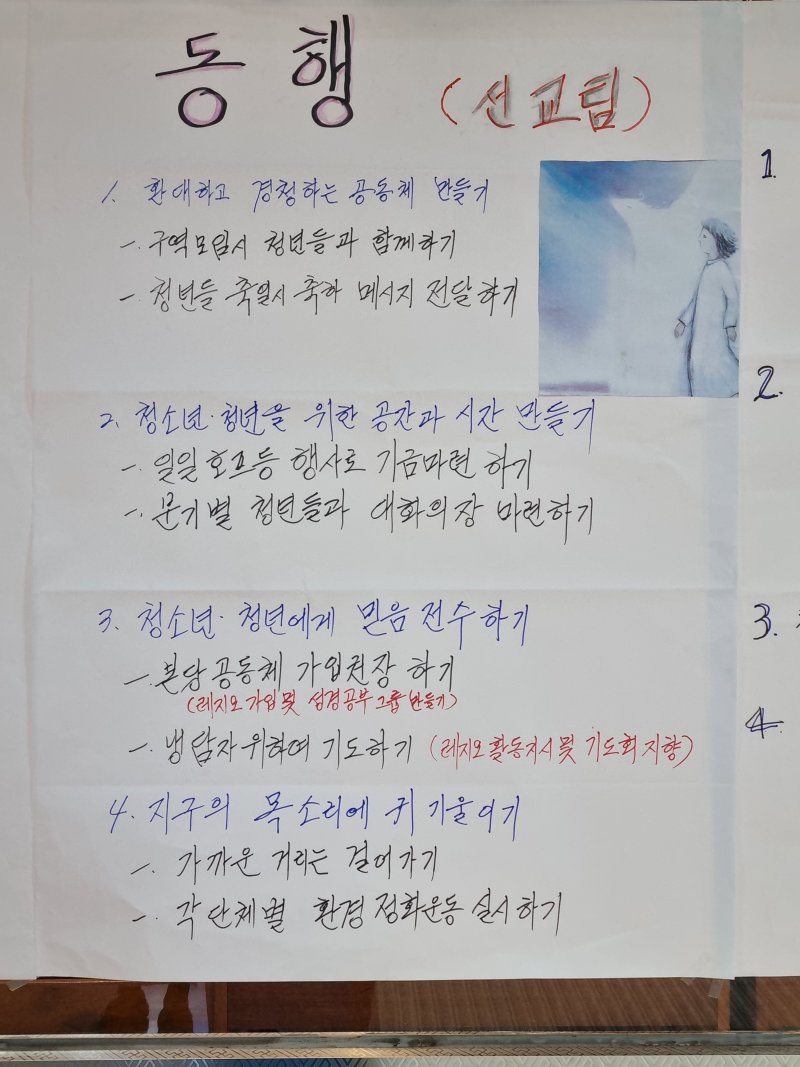 동행 (선교팀)
1. 환대하고 경청하는 공동체 만들기
-. 구역모임시 청년들과 함께하기
- 청년들 축일시 축하 메시지 전달하기
2. 청소년·청년을 위한 공간과 시간 만들기
-. 일일호프등 행사로 기금마련 하기
-. 분기별 청년들과 대화의장 마련하기
3. 청소년·청년에게 믿음 전수하기
-. 본당공동체 가입권장 하기
(레지오 가입 및 성경공부 그룹 만들기)
-. 냉담자 위하여 기도하기 (레지오 활동지시 및 기도회 지향)
4. 지구의 목소리에 귀 기울이기
-. 가까운 거리는 걸어가기
-. 각 단체별 환경정화운동 실시하기
1.
2.
3.
4.